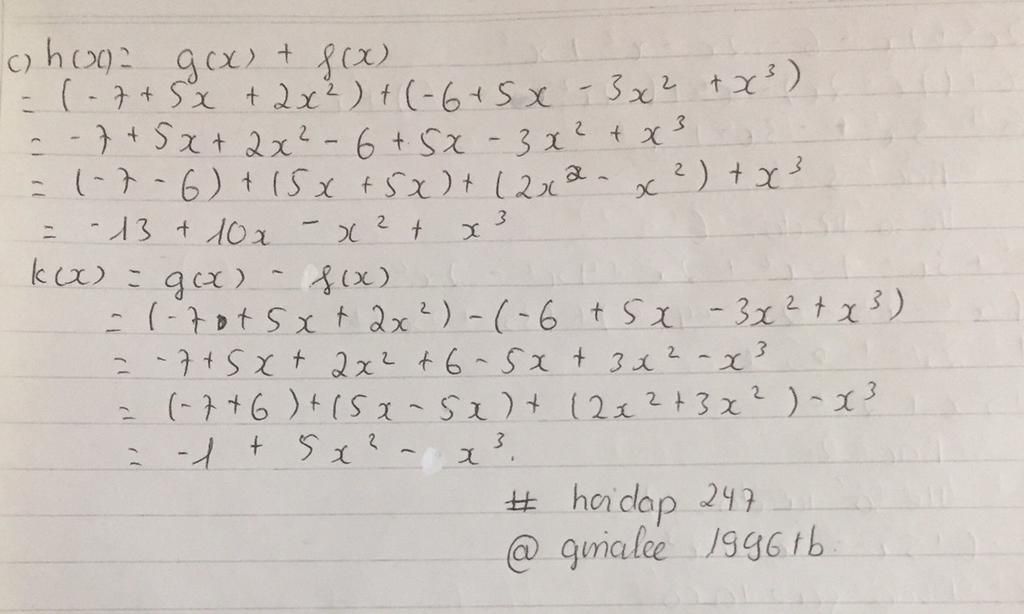 c) h(x) = g(x) + f(x)
= (-7 + 5x + 2x² ) + (-6 + 5x - 3x² + x³ )
= -7 + 5x + 2x² - 6 + 5x - 3x² + x³
= (-7 - 6) + (5x + 5x) + (2x² - x² ) + x³
= -13 + 10x - x² + x³
k(x) = g(x) - f(x)
= (-7 + 5x + 2x²) - (-6 + 5x - 3x² + x³)
= -7 + 5x + 2x² + 6 - 5x + 3x² - x³
= (-7 + 6) + (5x - 5x) + (2x² + 3x² ) - x³
= -1 + 5x² - x³.
# hoidap 247
@